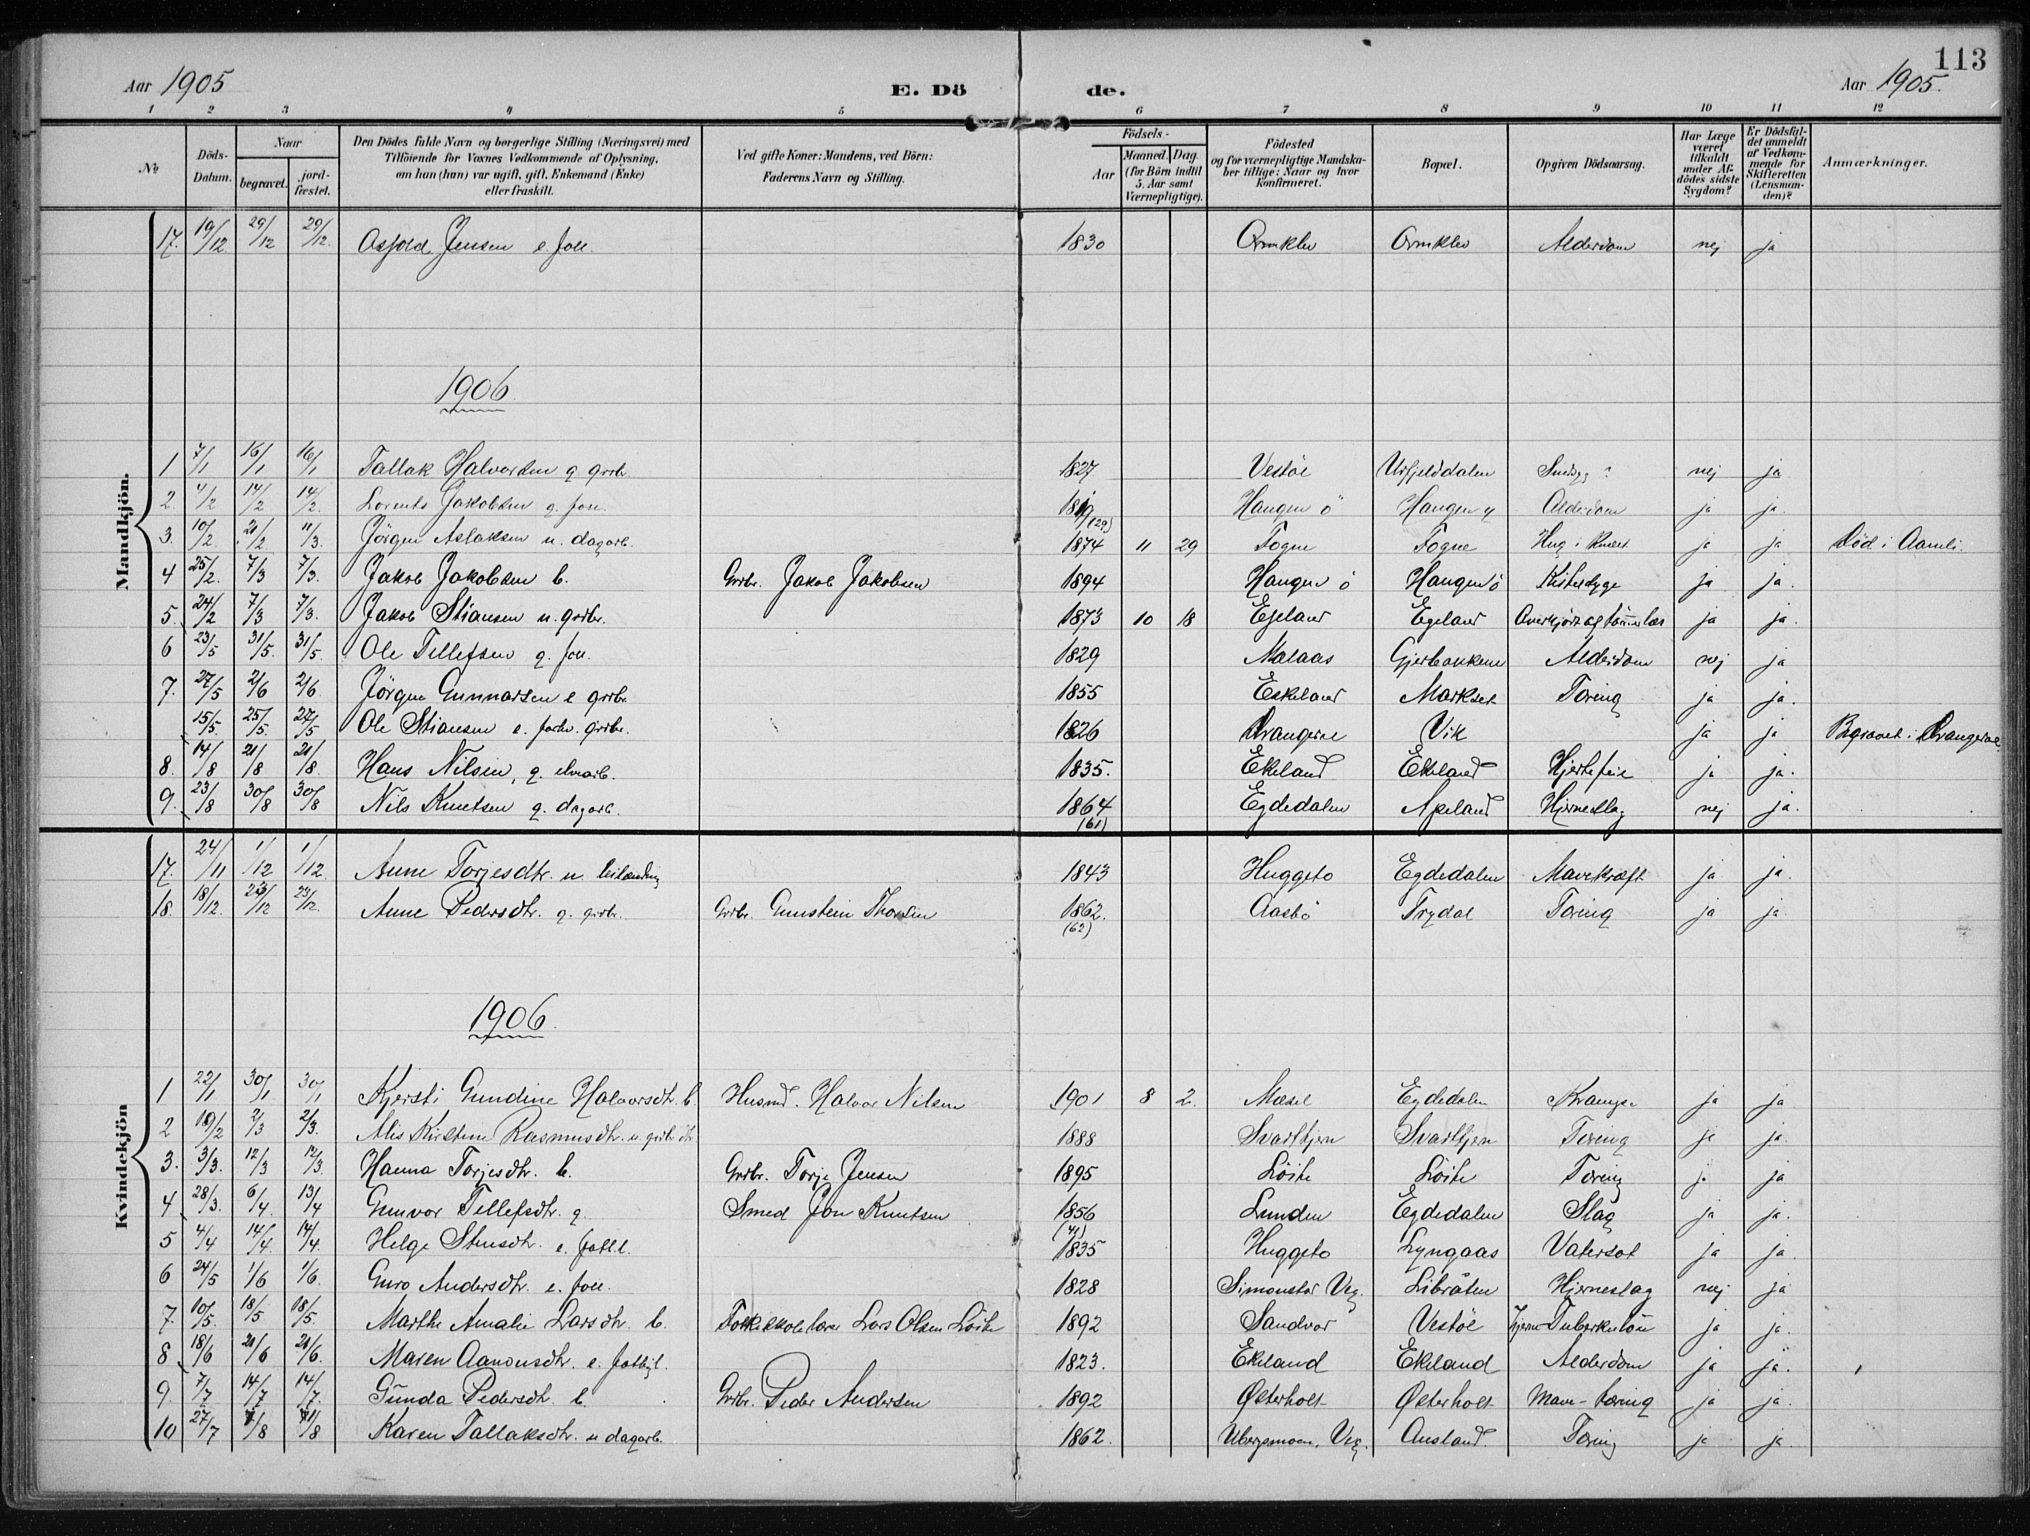 113
Aar 1905 E. Dö de. Aar 1905.
1 2 3 4 5 6 7 8 9 10 11 12
No Döds-Datum. Naar begravet. jordfæstet. Den Dödes fulde Navn og borgerlige Stilling (Næringsvei) med Tilföiende for Voxnes Vedkommende af Oplysning, om han (hun) var ugift, gift, Enkemand (Enke) eller fraskilt. Ved gifte Koner: Mandens, ved Börn: Faderens Navn og Stilling. Födsels- Aar Maaned. Dag. (for Börn indtil 5. Aar samt Værnepligtige). Födested og for værnepligtige Mandskaber tillige: Naar og hvor Konfirmeret. Bopæl. Opgiven Dödsaarsag. Har Læge været tilkaldt under Afdödes sidste Sygdom? Er Dödsfaldet anmeldt af Vedkommende for Skifteretten (Lensmanden)? Anmærkninger.
Mandkjön.
17. 19/12 29/12 29/12. Osfold Jensen e. foll. 1830 Ormklev Ormklev Alderdom nej ja
1906.
1 7/1 16/1 16/1 Tallak Halvorsen g. grdbr. 1827 Vestöl Urfjelddalen nej ja
2 4/2 14/2 14/2. Lorents Jakobsen g. foll. Haugen ö Haugen Alderdom ja ja.
3. 10/2 21/2 11/3. Jörgen Aslaksen u. dagarb. 1874 11 29 Fogne Fogne Hug i knæet ja ja Död i Aamli.
4 25/2. 7/3 7/3. Jakob Jakobsen b. Grdbr. Jakob Jakobsen 1894 Haugen ö Haugen ö Kirtelsyge ja ja.
5. 24/2 7/3 7/3. Jakob Stiansen u. grdbr. 1873 10 18 Egeland Egeland Overkjört af tömmerlæs ja ja.
6 23/5 31/5. 31/5 Ole Tellefsen g. foll. 1829 Malaas Gjerbakkene Alderdom nej ja
7. 27/5 2/6 2/6. Jörgen Gunnarsen e grdbr. 1855 Eskeland Markset Tæring ja ja
15/5. 25/5. 27/5 Ole Stiansen e. forhv. grdbr. 1826 Vrangerne Vik ja ja Begravet i Vrangerne.
8. 14/8 21/8 21/8. Hans Nilsen, g. elvearb. 1835. Ekeland Ekeland Hjertefeil ja ja.
9. 23/8 30/8 30/8 Nils Knutsen g. dagarb. 1864 (61) Egdedalen Apeland Hjerneslag nej ja.
Kvindekjön
17. 24/11 1/12 1/12. Anne Torjesdtr. u. 1843 Huggeto Egdedalen Mavekræft ja ja.
18. 18/12. 23/12 23/12. Anne Pedersdtr. g. grdbr. Grdbr. Gunstein Thorsen 1862. (62) Aasbö Trydal Tæring ja ja
1906.
1 22/1 30/1 30/1 Kjersti Gundine Halvorsdtr. b. Husmd. Halvor Nilsen 1901 8 2. Mæsel Egdedalen Krampe ja ja
2 19/2 2/3 2/3. Alis Kirstine Rasmusdtr. u. grdbr. dtr. 1888 Svarttjern Svarttjern Tæring ja ja.
3. 3/3. 12/3 12/3. Hanna Torjesdtr. b. Grdbr. Torje Jensen 1895 Löite Löite Tæring ja ja
4 28/3. 6/4. 13/4 Gunvor Tellefsdtr. g. Smed Jon Knutsen 1856 (41) Lunden Egdedalen Slag ja ja.
5 4/4 14/4. 14/4. Helge Stensdtr. e. fattl. 1835 Huggeto Lyngaas Vatersot ja ja.
6 24/5 1/6 1/6. Guro Andersdtr. e. foll. 1828 Simonstad Veg. Libråten Hjerneslag nej ja
7. 10/5. 18/5 18/5. Marthe Amalie Larsdtr. b. Folkeskolelærer Lars Olsen Löite 1892 Sandvor Vestöl Hjerne-Tuberkulose ja ja.
8 18/6 21/6 21/6. Maren Aanonsdtr. e. fathjl. 1823. Ekeland Ekeland Alderdom ja ja.
9. 7/7 14/7 14/7. Gunda Pedersdtr. b. Grdbr. Peder Andersen 1892 Østerholt Østerholt Mave-tæring ja ja
10 27/7 7/8 /8 Karen Tallaksdtr. u dagarb. 1862. Ubergsmoen, Veg. Ausland. Tæring ja ja.